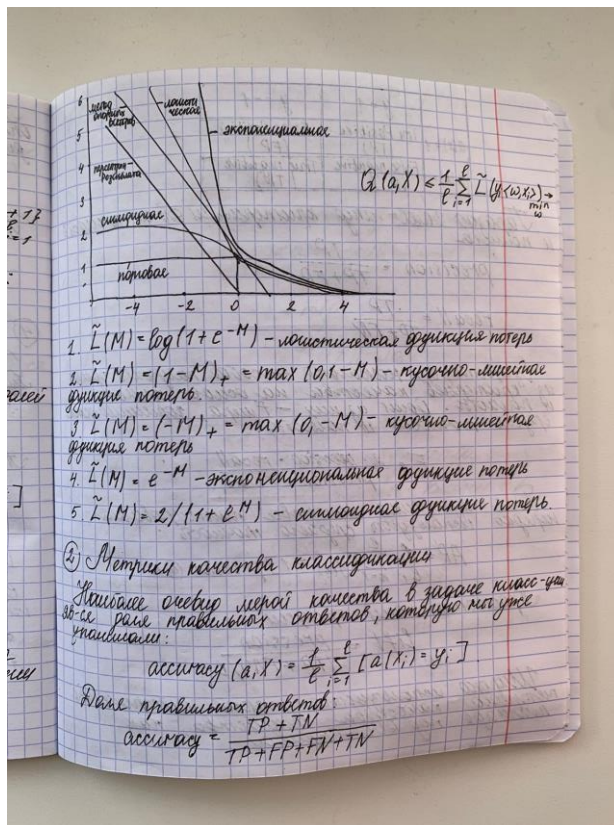 6
5
4
3
2
1
-4
-2
0
2
4
метод
опорных
векторов
-логисти
ческая
-экспоненциальная
персептрон
розенблата
сигмоидная
пороговая
Q(a,X) ≤ 1/ℓ ℓ∑i=1 L̃(yi<w,xi>) → min w
1. L̃(M) = log(1+e^-M) – логистическая функция потерь
2. L̃(M) = (1-M)+ = max(0,1-M) – кусочно-линейная
функция потерь
3. L̃(M) = (-M)+ = max(0,-M) – кусочно-линейная
функция потерь
4. L̃(M) = e^-M – экспоненциональная функция потерь
5. L̃(M) = 2/(1+e^M) – сигмоидная функция потерь.
② Метрики качества классификации
Наиболее очевид мерой качества в задаче класс-ции
яв-ся доля правильных ответов, которую мы уже
упоминали:
accuracy (a,X) = 1/ℓ ℓ∑i=1 [a(xi) = yi].
Доля правильных ответов:
accuracy = TP + TN / TP + FP + FN + TN